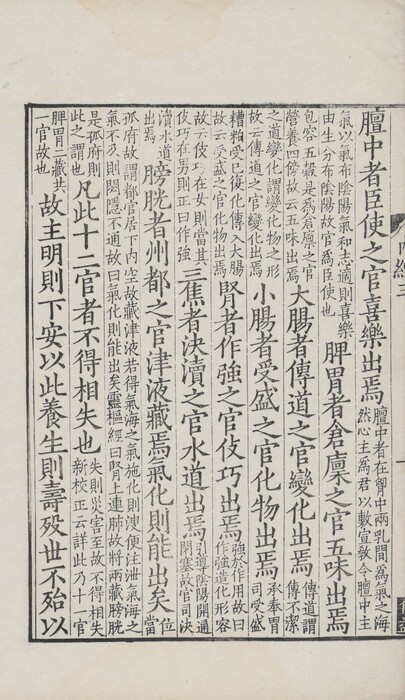 膻中者臣使之官喜樂出焉
膻中者在胷中兩乳間爲氣之海
然心主爲君以敷宣敎令膻中主
氣以氣布陰陽氣和志適則喜樂
由生分布陰陽故官爲臣使也
脾胃者倉廩之官五味出焉
包容五穀是爲倉廩之官
營養四傍故云五味出焉
大腸者傳道之官變化出焉
傳道謂
傳不潔
之道變化謂變化物之形
故云傳道之官變化出焉
小腸者受盛之官化物出焉
承奉胃
司受盛
糟粕受已復化傳入大腸
故云受盛之官化物出焉
腎者作強之官伎巧出焉
強於作用故曰
作強造化形容
故云伎巧在女則當其
伎巧在男則正曰作強
三焦者決瀆之官水道出焉
引導陰陽開通
閉塞故官司決
瀆水道
出焉
膀胱者州都之官津液藏焉氣化則能出矣
位當
孤府故謂都官居下內空故藏津液若得氣海之氣施化則溲便注泄氣海之
氣不及則閟隱不通故曰氣化則能出矣靈樞經曰腎上連肺故將兩藏膀胱
是孤府則
此之謂也
凡此十二官者不得相失也
失則災害至故不得相失
新校正云詳此乃十一官
脾胃二藏共
一官故也
故主明則下安以此養生則壽歿世不殆以